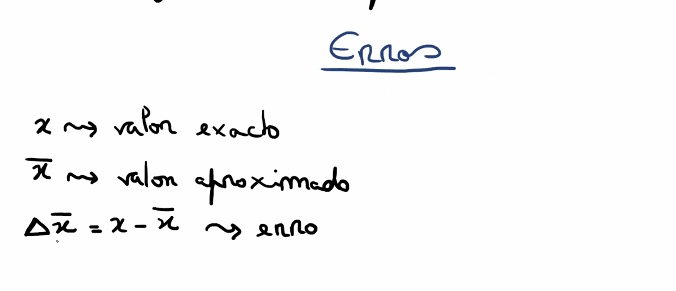 Erros
x ⇝ valor exacto
x̅ ⇝ valor aproximado
Δx̅ = x - x̅ ⇝ erro